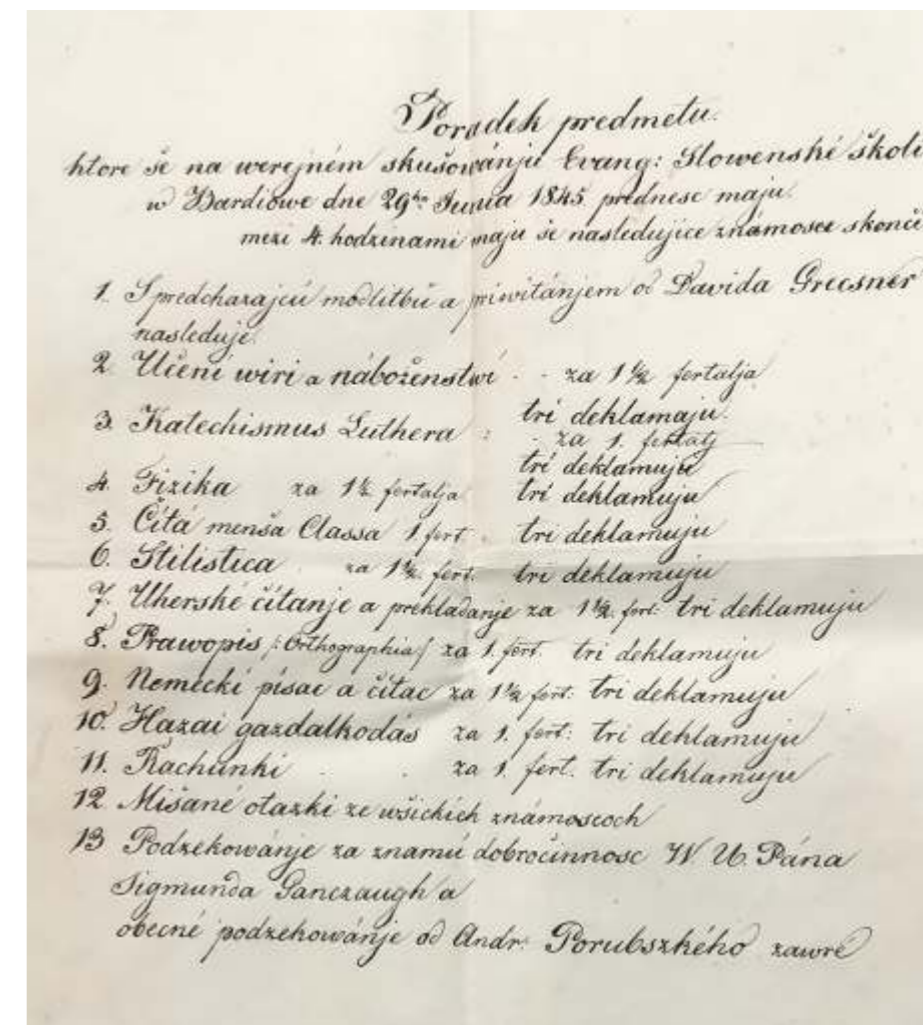 Poradek predmetu.
ktore še na werejném skušowánju Evang: Slowenské školi
w Bardiowe dne 29ho Junia 1845 prednese maju.
mezi 4. hodzinami maju še nasledujíce známosce skonči
1. S predcházajcú modlitbú a priwitánjem od Davida Grecsner
nasleduje.
2. Učení wiri a náboženstwi - - za 1 1/2 fertalja
tri deklamaju.
3. Katechismus Luthera : - za 1. fertalj
tri deklamuju
4. Fizika za 1 1/2 fertalja tri deklamuju
5. Čitá menša Classa 1 fert. tri deklamuju
6. Stilistica . za 1 1/2 fert. tri deklamuju
7. Uherské čitanje a prekladanje za 1 1/2 fert. tri deklamuju
8. Prawopis /: Orthographia / za 1. fert. tri deklamuju
9. Nemecki písac a čitac za 1 1/2 fert: tri deklamuju
10. Hazai gazdalkodás za 1. fert: tri deklamuju
11. Rachunki . . za 1. fert. tri deklamuju
12 Mišané otazki ze wšickich známoscoch
13 Podzekowánje za znamú dobročinnosc W. U. Pána
Sigmunda a
obecné podzekowánje od Andr: Porubszkého zawre